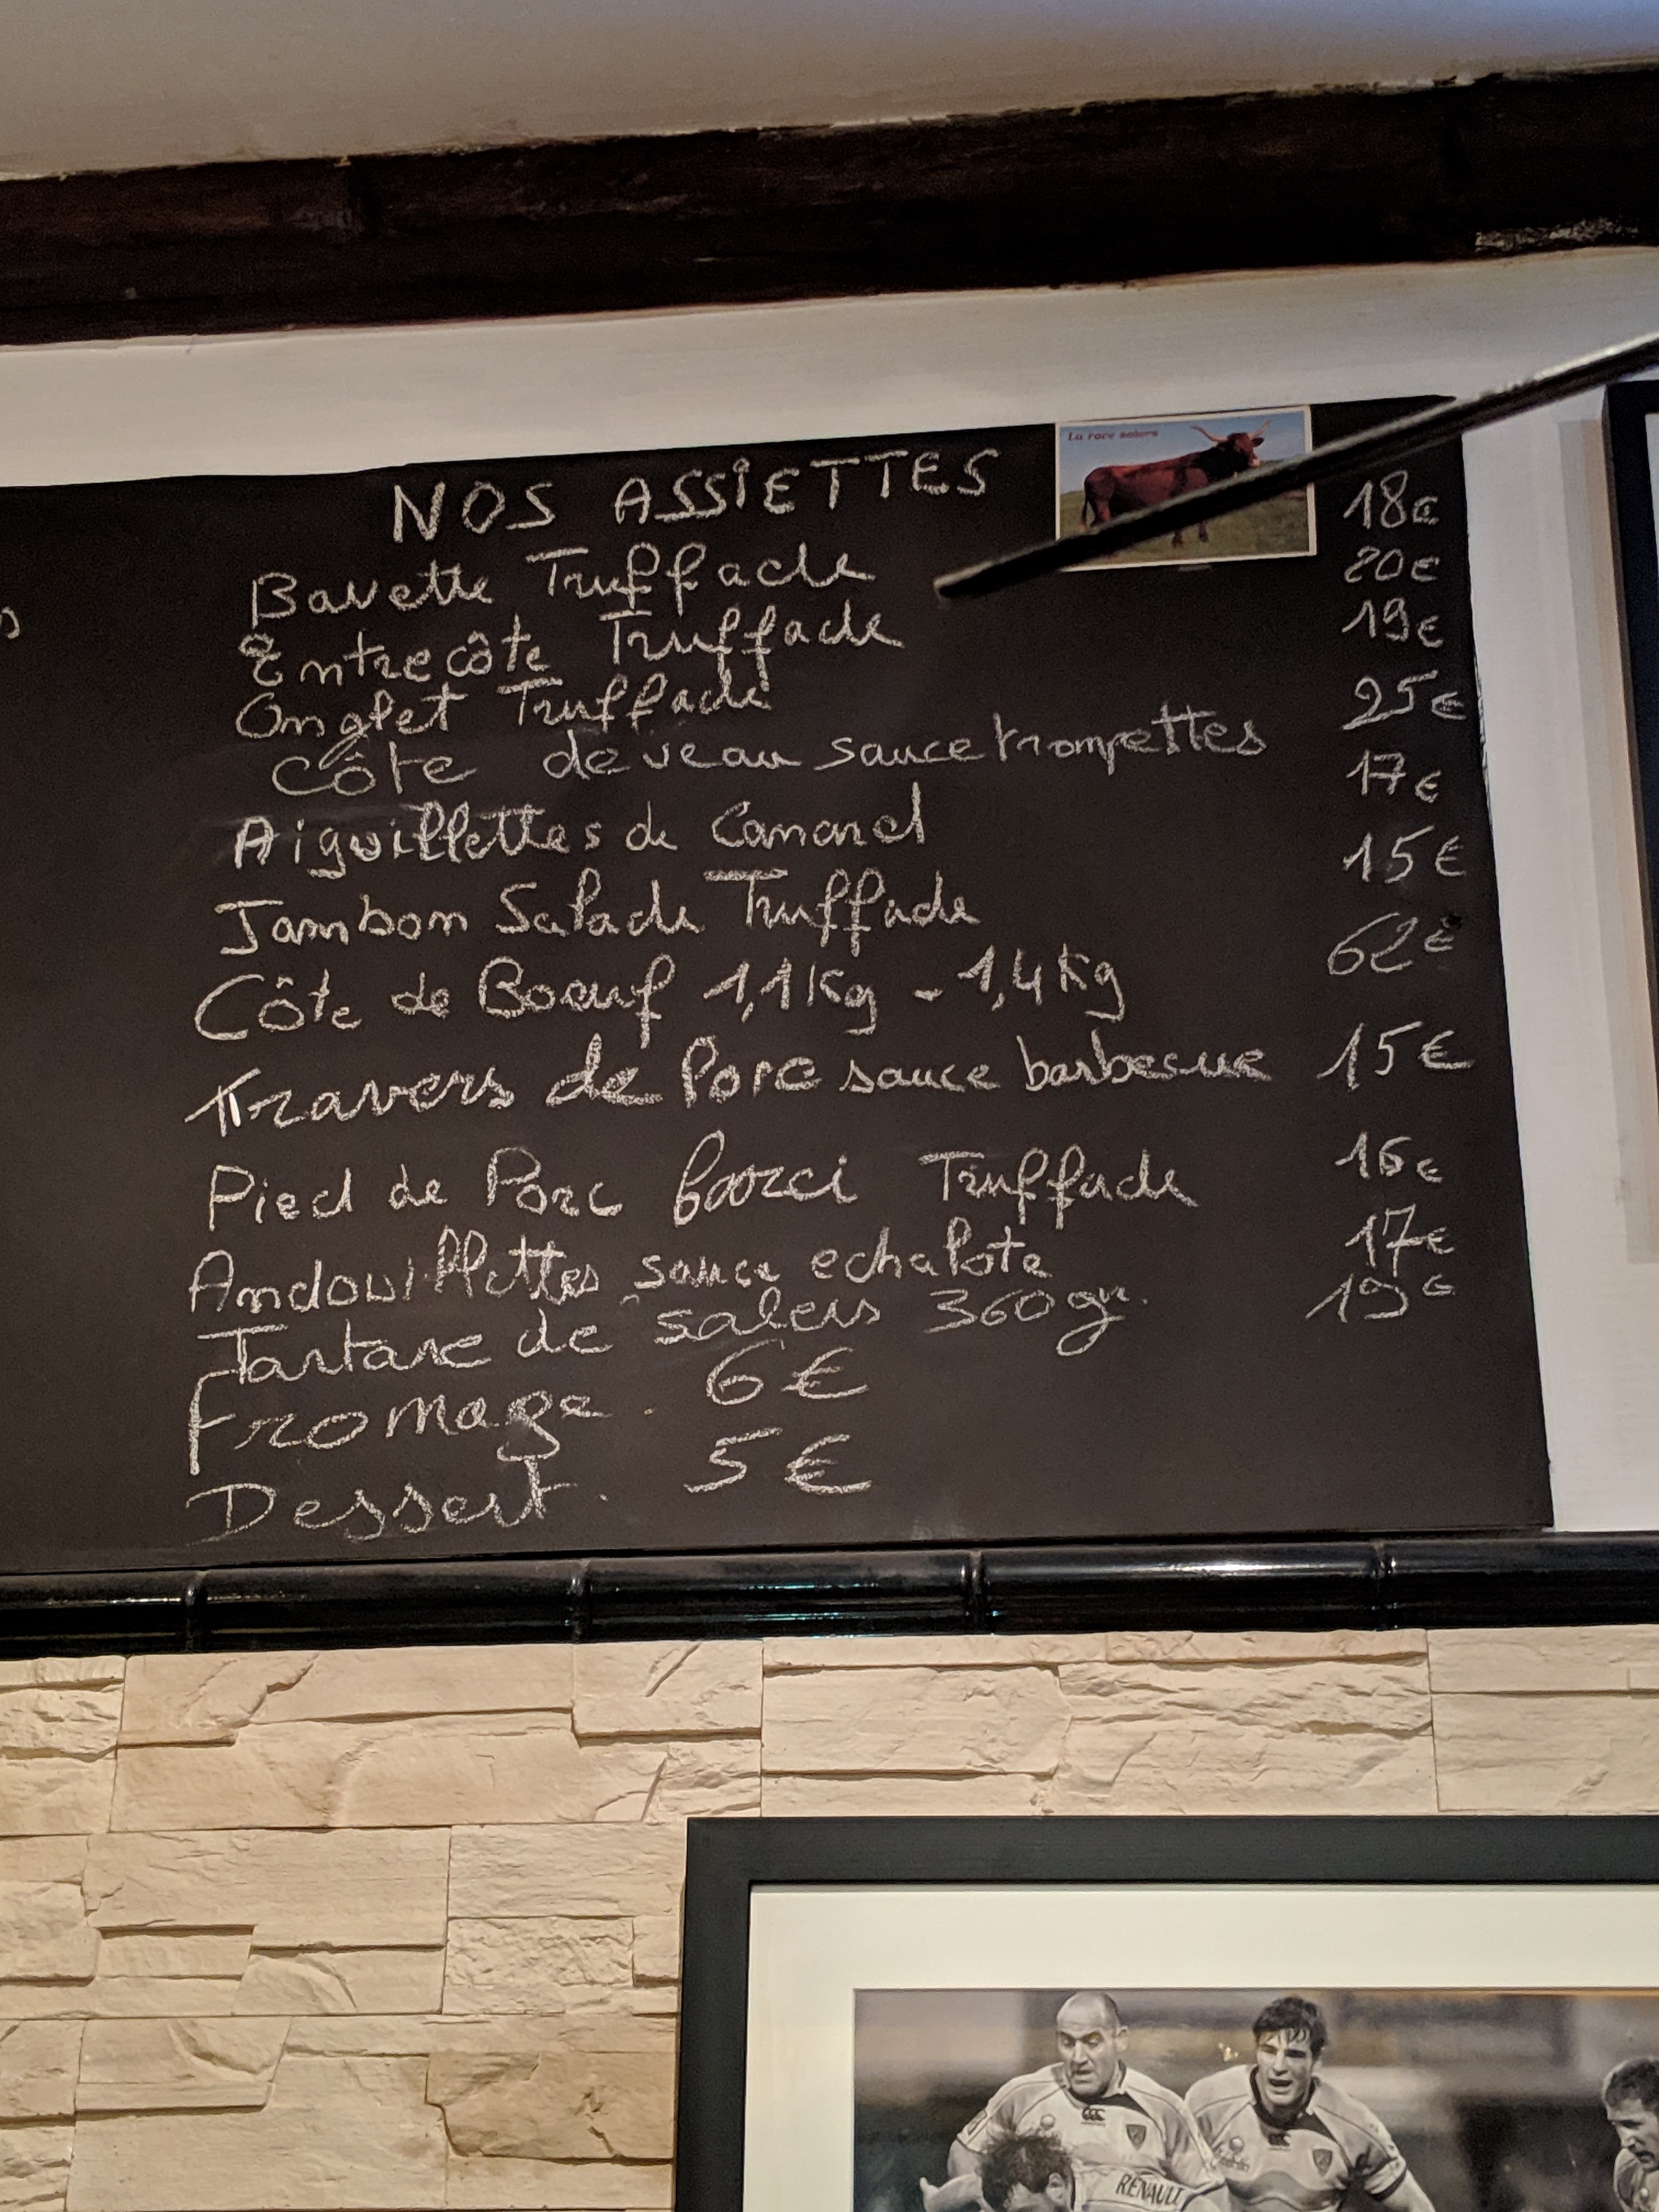 NOS ASSIETTES
La race salers
Bavette Truffade 18€
Entrecôte Truffade 20€
Onglet Truffade 19€
Côte de veau sauce trompettes 25€
Aiguillettes de Canard 17€
Jambon Salade Truffade 15€
Côte de Boeuf 1,1Kg - 1,4Kg 62€
Travers de Porc sauce barbecue 15€
Pied de Porc farci Truffade 16€
Andouillettes sauce echalote 17€
Tartare de salers 360gr. 19€
Fromage. 6€
Dessert. 5€
RENAULT